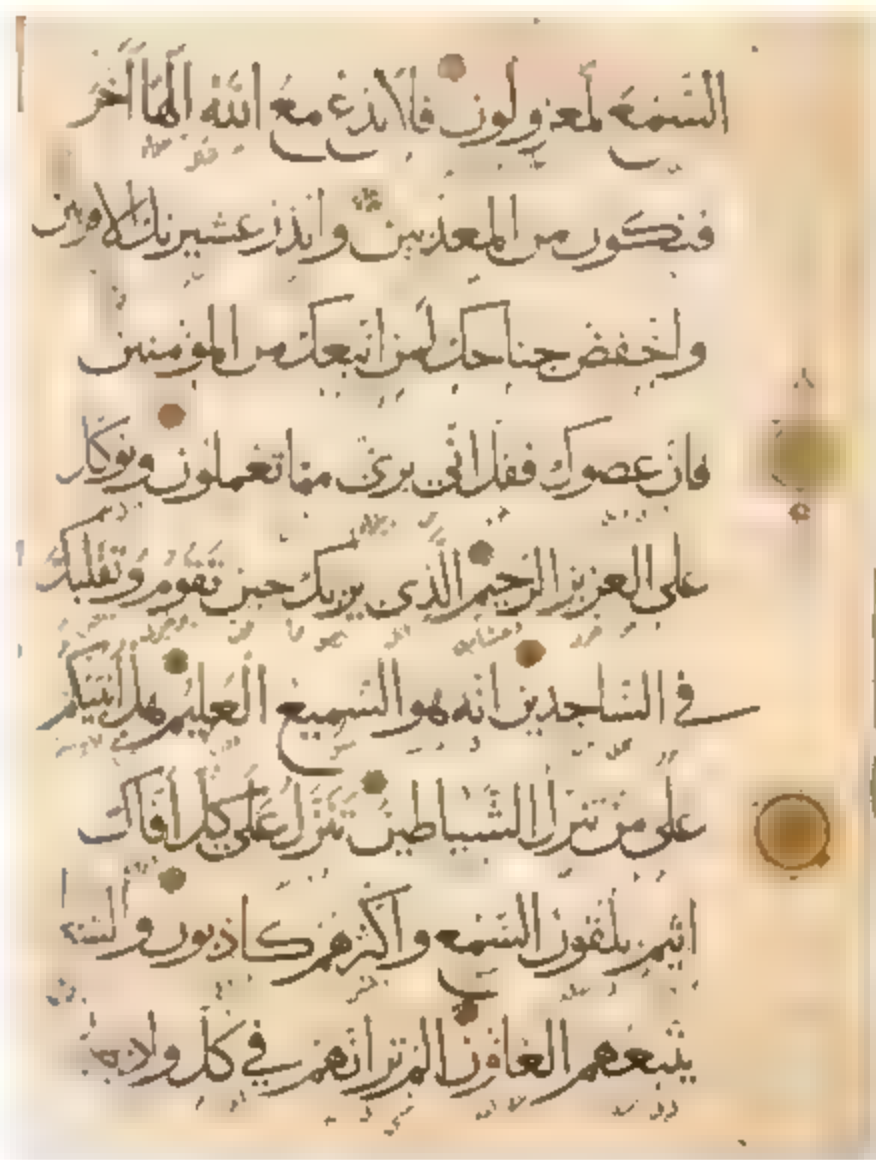 السمع لمعزولون فلا تدع مع الله الها اخر
فتكون من المعذبين وانذر عشيرتك الاقربين
واخفض جناحك لمن اتبعك من المؤمنين
فان عصوك فقل اني بريء مما تعملون وتوكل
على العزيز الرحيم الذي يريك حين تقوم وتقلبك
في الساجدين انه هو السميع العليم هل انبئكم
على من تنزل الشياطين تنزل على كل افاك
اثيم يلقون السمع واكثرهم كاذبون
يتبعهم الغاون الم تر انهم في كل واد